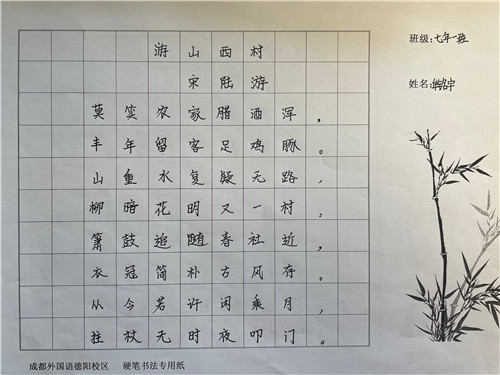 游山西村
宋陆游
莫笑农家腊酒浑，
丰年留客足鸡豚。
山重水复疑无路，
柳暗花明又一村。
箫鼓追随春社近，
衣冠简朴古风存。
从今若许闲乘月，
拄杖无时夜叩门。
班级：七年一班
姓名：
成都外国语德阳校区 硬笔书法专用纸